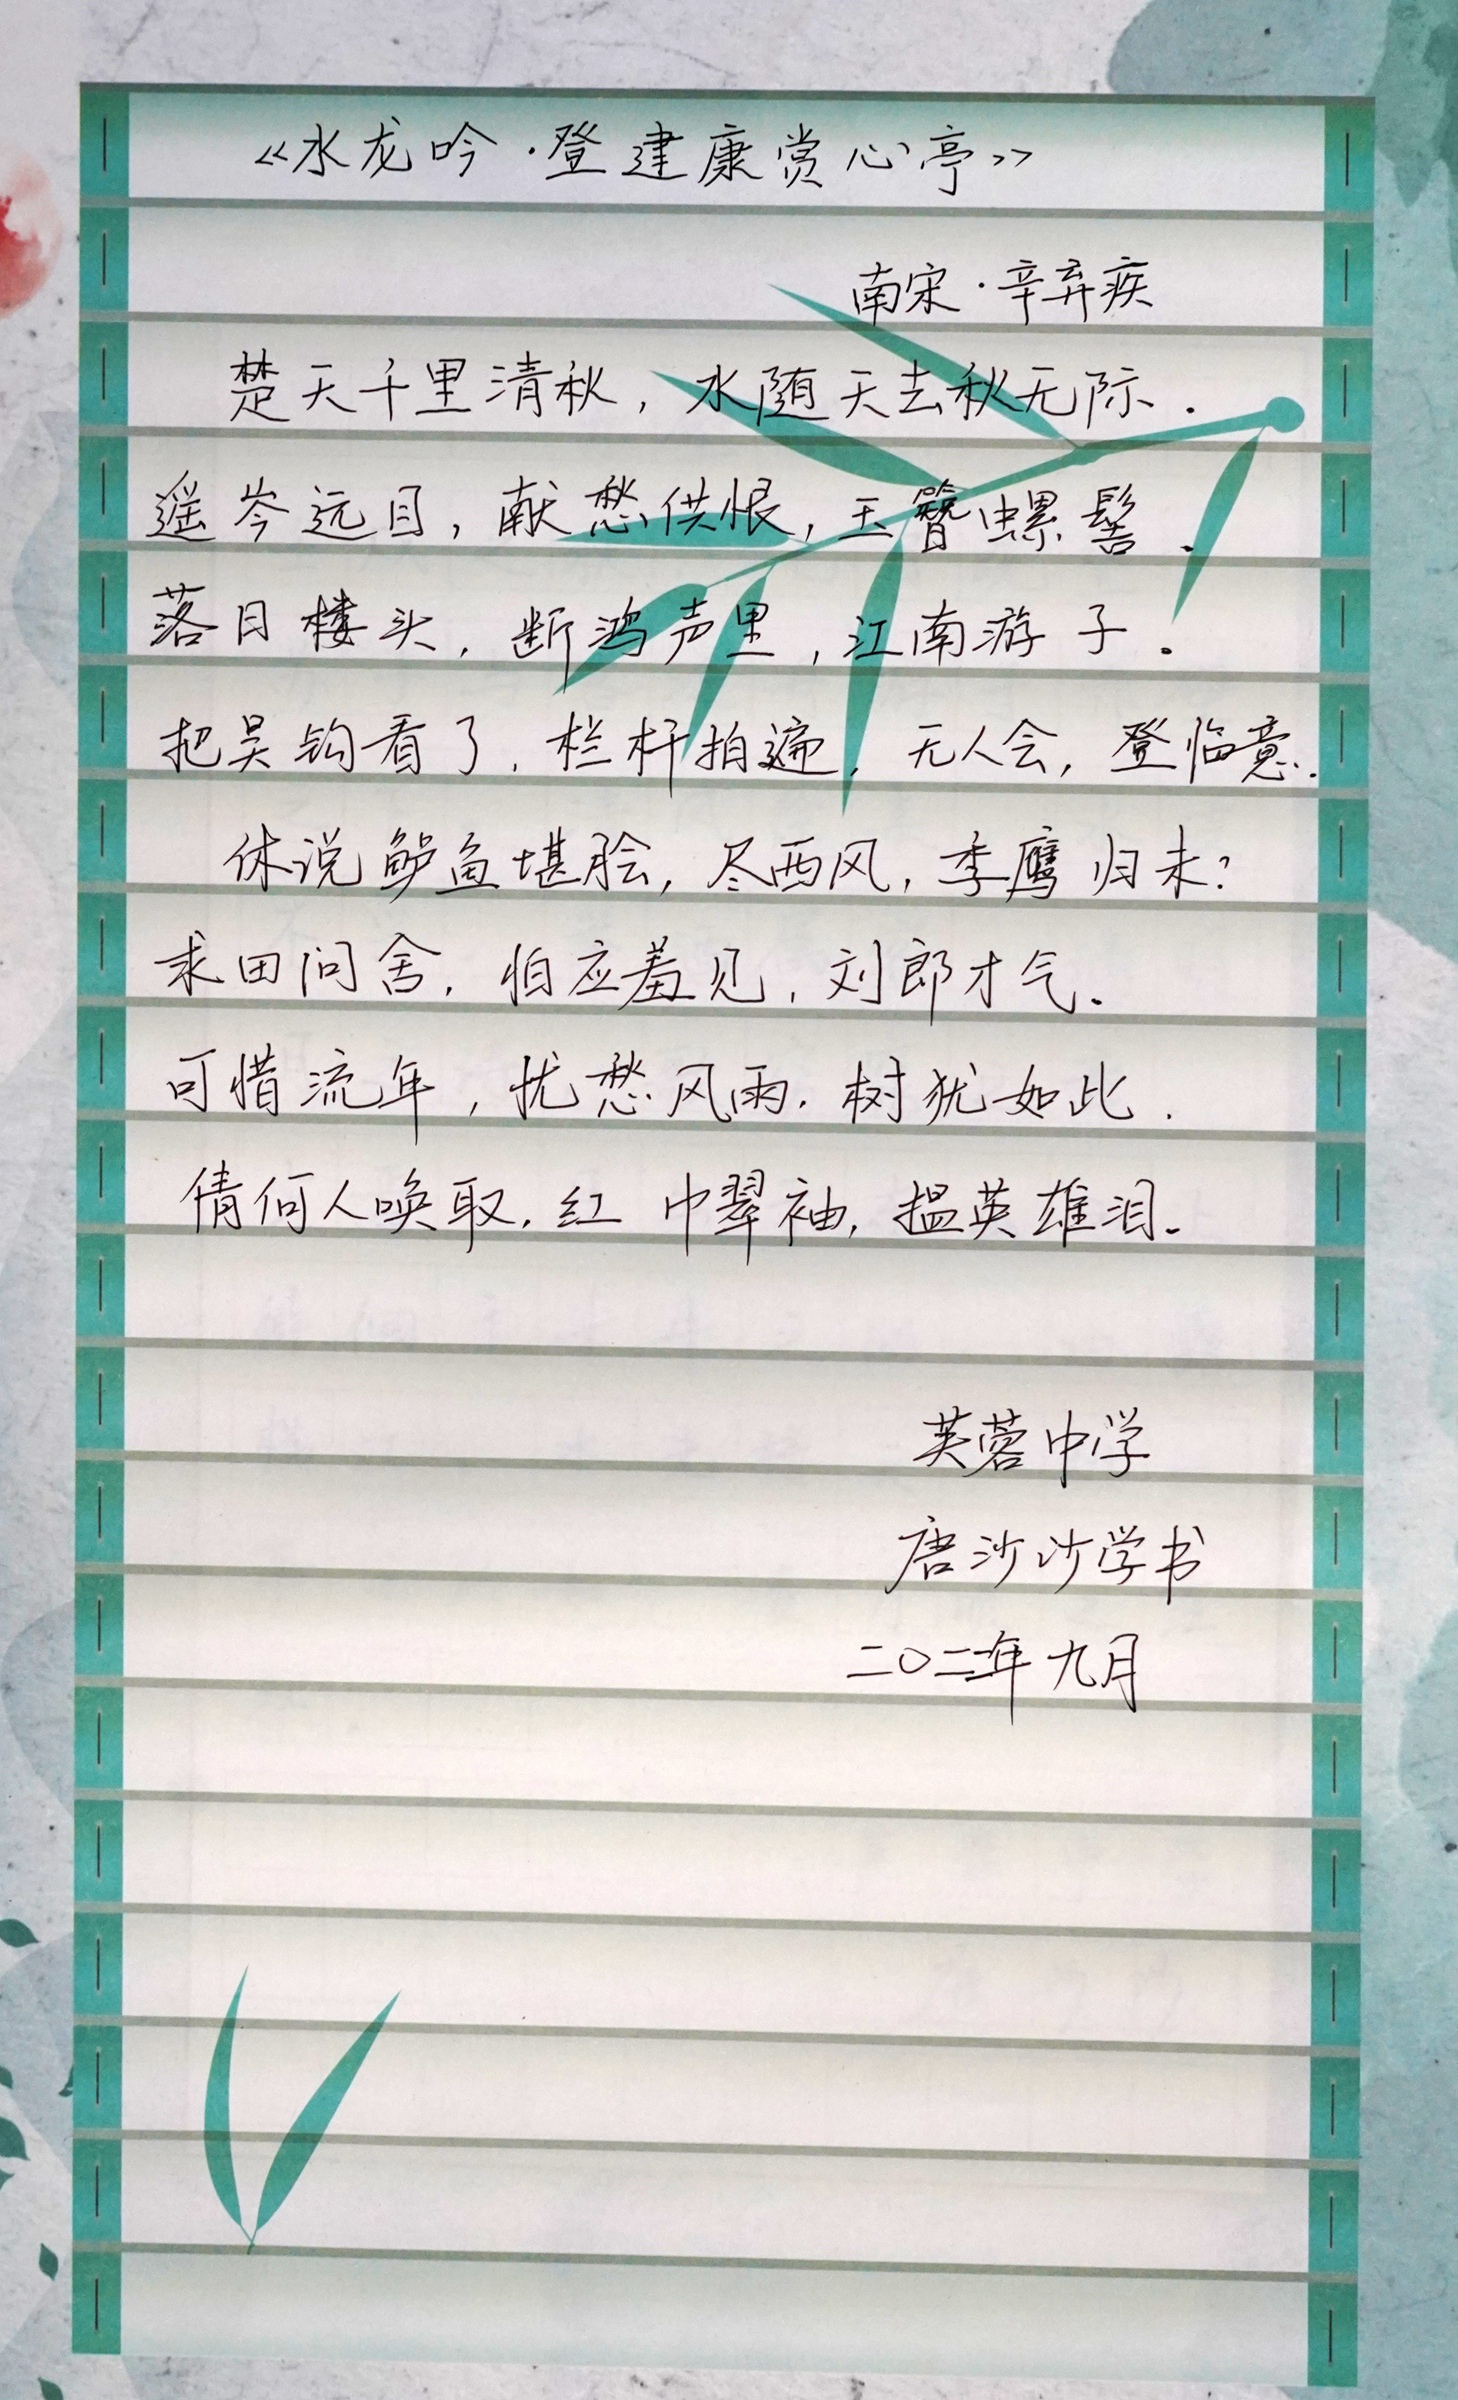 《水龙吟·登建康赏心亭》
南宋·辛弃疾
楚天千里清秋，水随天去秋无际.
遥岑远目，献愁供恨，玉簪螺髻.
落日楼头，断鸿声里，江南游子.
把吴钩看了，栏杆拍遍，无人会，登临意.
休说鲈鱼堪脍，尽西风，季鹰归未？
求田问舍，怕应羞见，刘郎才气.
可惜流年，忧愁风雨，树犹如此.
倩何人唤取，红巾翠袖，揾英雄泪.
芙蓉中学
唐沙沙学书
二〇二二年九月